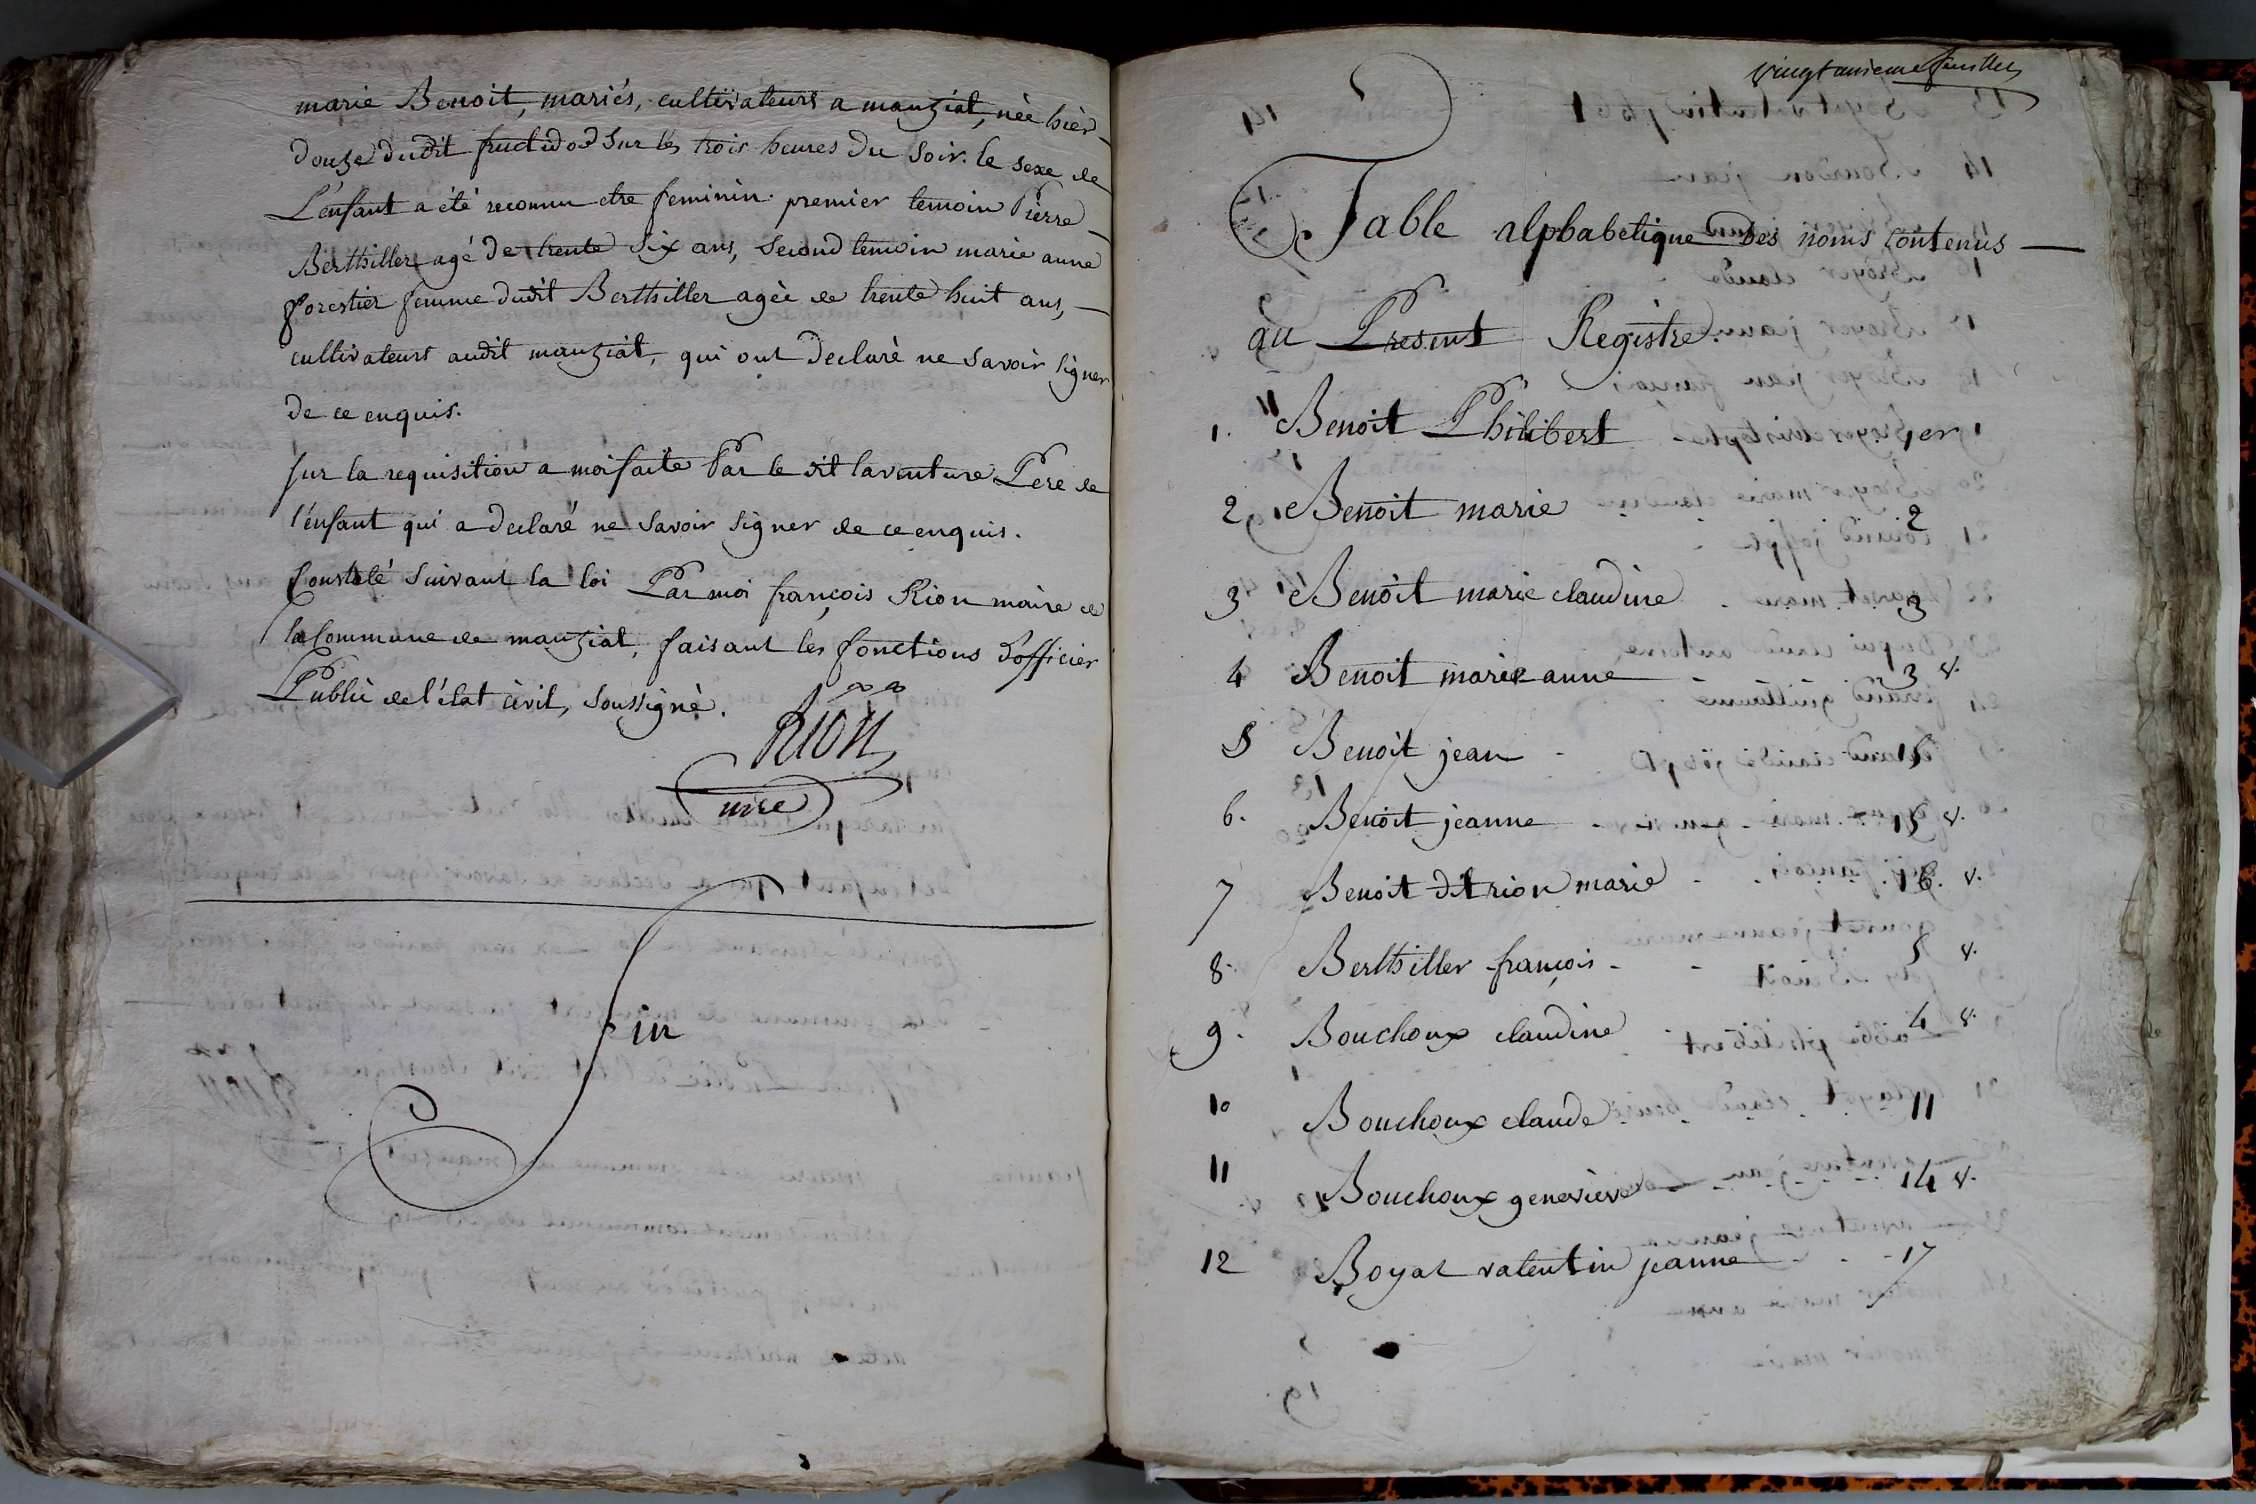 marie Benoit, mariés, cultivateurs a manziat, née hier
douze dudit fructidor sur les trois heures du soir. le sexe de
L'enfant a été reconnu etre feminin. premier temoin Pierre
Berthiller agé de trente six ans, second temoin marie anne
forestier femme dudit Berthiller agèe de trente huit ans,
cultivateurs audit manziat, qui ont declaré ne savoir signer
de ce enquis.
sur la requisition a moi faite Par le dit laventure Pere de
l'enfant qui a declaré ne savoir signer de ce enquis.
Constaté suivant la loi Par moi françois Rion maire de
la Commune de manziat, faisant les fonctions d'officier
Public de l'état civil, soussigné.
Rion
mire
fin
vingt unieme feuillet
Table alphabetique Des noms Contenus
au Present Registre.
1. Benoit Philibert 1er
2 Benoit marie 2
3 Benoit marie claudine 3
4 Benoit marie anne 3 v.
5 Benoit jean 15
6. Benoit jeanne 15 v.
7 Benoit dit rion marie 16. v.
8. Berthiller françois 5 v.
9. Bouchoux claudine 4 v.
10 Bouchoux claude 11
11 Bouchoux genevieve 14 v.
12 Boyat valentin jeanne 17